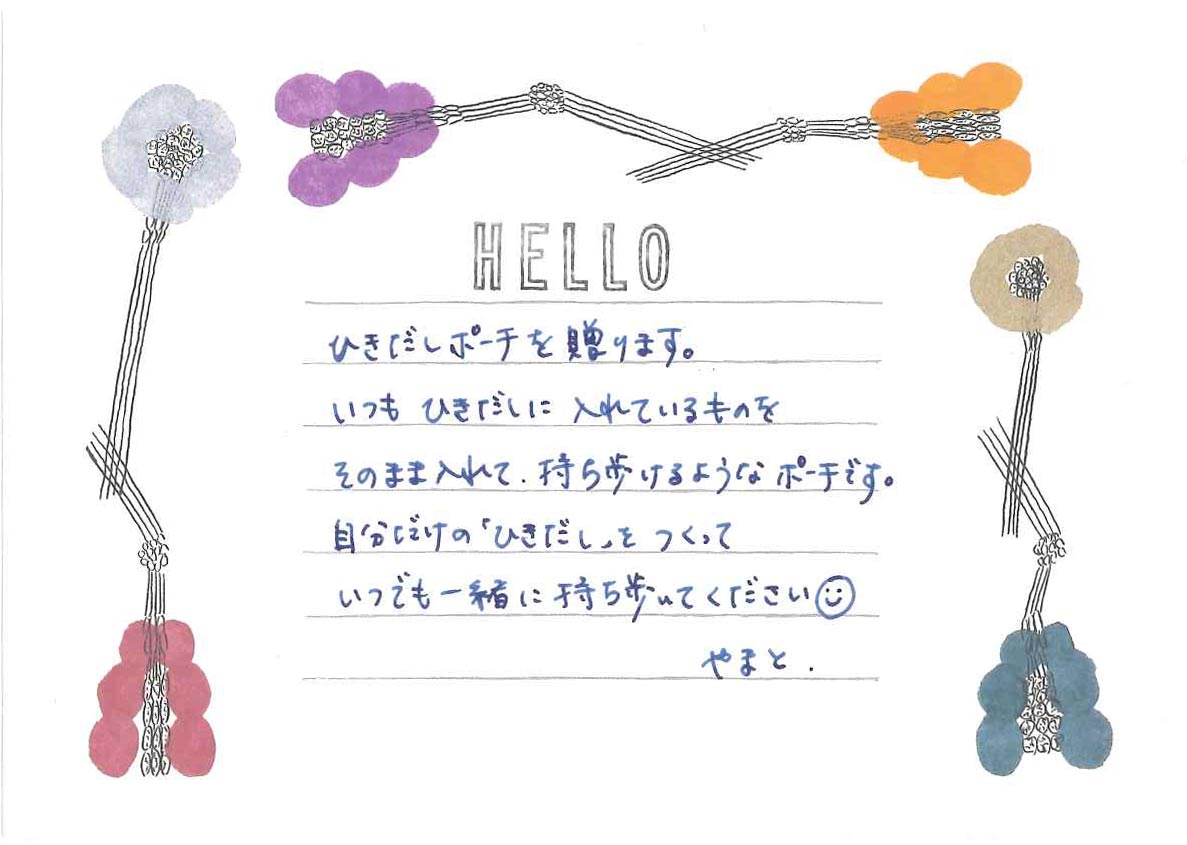 HELLO
ひきだしポーチを贈ります。
いつも ひきだしに 入れているものを
そのまま入れて、持ち歩けるような ポーチです。
自分だけの「ひきだし」を つくって
いつでも一緒に 持ち歩いてください☺
やまと.